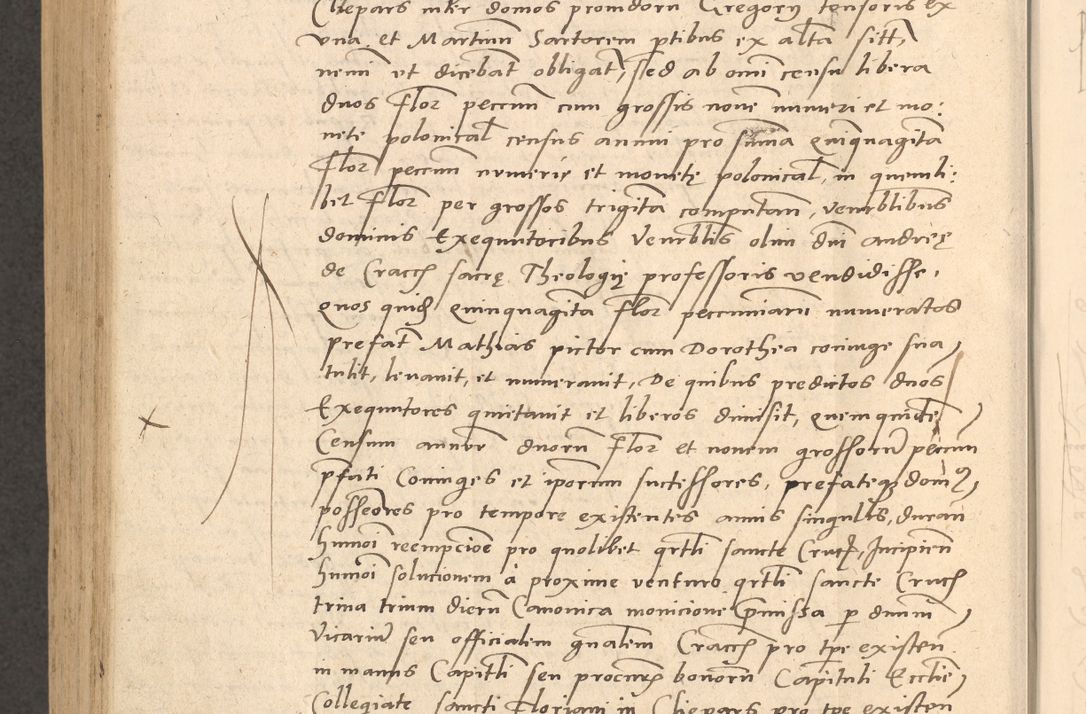 Clepars inter domos promdorum Gregorÿ tonsoris ex
vna et Martinum Sartorem ptibus ex alta sitt,
nemi vt dicebat obligat, sed ab omni censu libera
duos flor peccun cum grossis nouem numeri et mo:
nete polonical census annui pro suma quinquaginta
flor peccun numeri et monetę polonical, in quemli:
bet flor per grossos triginta computan, venerblibus
dominis Exequutoribus Venerblis olim dni andreę
de Cracch sacrę Theologię professoris vendidisse,
quos quidem quinquaginta flor peccuniarum numeratos
prefat Mathias pictor cum Dorothea coniuge sua
tulit, leuauit, et numerauit, De quibus predictos duos
Exequutores quietauit et liberos dimisit, quem quidem
Censum annuum duorum flor et nouem grossorum peccun
pfati Coniuges et ipsorum successores, prefateque domus
possessores pro tempore existentes annis singulis, duran
humoi reempcione pro quolibet qrtli sancte Crucis, Incipien
humoi solucionem à proxime venturo qrtli sancte Crucis
trina trium dierum Canonica monicione pmissa p dnum
Vicarium seu officialem gnalem Cracch pro tpe existen
in manus Capitli seu procuratoris bonorum Capituli Ecclie
Collegiate sancti Floriani in Clepars pro tpe existen